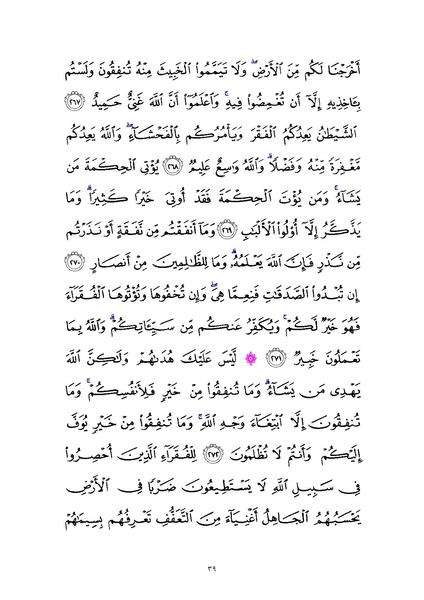 أَخۡرَجۡنَا لَكُم مِّنَ ٱلۡأَرۡضِۖ وَلَا تَيَمَّمُواْ ٱلۡخَبِيثَ مِنۡهُ تُنفِقُونَ وَلَسۡتُم
بِـَٔاخِذِيهِ إِلَّآ أَن تُغۡمِضُواْ فِيهِۚ وَٱعۡلَمُوٓاْ أَنَّ ٱللَّهَ غَنِيٌّ حَمِيدٌ ٢٦٧
ٱلشَّيۡطَٰنُ يَعِدُكُمُ ٱلۡفَقۡرَ وَيَأۡمُرُكُم بِٱلۡفَحۡشَآءِۖ وَٱللَّهُ يَعِدُكُم
مَّغۡفِرَةٗ مِّنۡهُ وَفَضۡلٗاۗ وَٱللَّهُ وَٰسِعٌ عَلِيمٞ ٢٦٨ يُؤۡتِي ٱلۡحِكۡمَةَ مَن
يَشَآءُۚ وَمَن يُؤۡتَ ٱلۡحِكۡمَةَ فَقَدۡ أُوتِيَ خَيۡرٗا كَثِيرٗاۗ وَمَا
يَذَّكَّرُ إِلَّآ أُوْلُواْ ٱلۡأَلۡبَٰبِ ٢٦٩ وَمَآ أَنفَقۡتُم مِّن نَّفَقَةٍ أَوۡ نَذَرۡتُم
مِّن نَّذۡرٖ فَإِنَّ ٱللَّهَ يَعۡلَمُهُۥۗ وَمَا لِلظَّٰلِمِينَ مِنۡ أَنصَارٍ ٢٧٠
إِن تُبۡدُواْ ٱلصَّدَقَٰتِ فَنِعِمَّا هِيَۖ وَإِن تُخۡفُوهَا وَتُؤۡتُوهَا ٱلۡفُقَرَآءَ
فَهُوَ خَيۡرٞ لَّكُمۡۚ وَيُكَفِّرُ عَنكُم مِّن سَيِّـَٔاتِكُمۡۗ وَٱللَّهُ بِمَا
تَعۡمَلُونَ خَبِيرٞ ٢٧١ ۞ لَّيۡسَ عَلَيۡكَ هُدَىٰهُمۡ وَلَٰكِنَّ ٱللَّهَ
يَهۡدِي مَن يَشَآءُۗ وَمَا تُنفِقُواْ مِنۡ خَيۡرٖ فَلِأَنفُسِكُمۡۚ وَمَا
تُنفِقُونَ إِلَّا ٱبۡتِغَآءَ وَجۡهِ ٱللَّهِۚ وَمَا تُنفِقُواْ مِنۡ خَيۡرٖ يُوَفَّ
إِلَيۡكُمۡ وَأَنتُمۡ لَا تُظۡلَمُونَ ٢٧٢ لِلۡفُقَرَآءِ ٱلَّذِينَ أُحۡصِرُواْ
فِي سَبِيلِ ٱللَّهِ لَا يَسۡتَطِيعُونَ ضَرۡبٗا فِي ٱلۡأَرۡضِ
يَحۡسَبُهُمُ ٱلۡجَاهِلُ أَغۡنِيَآءَ مِنَ ٱلتَّعَفُّفِ تَعۡرِفُهُم بِسِيمَٰهُمۡ
٣٩